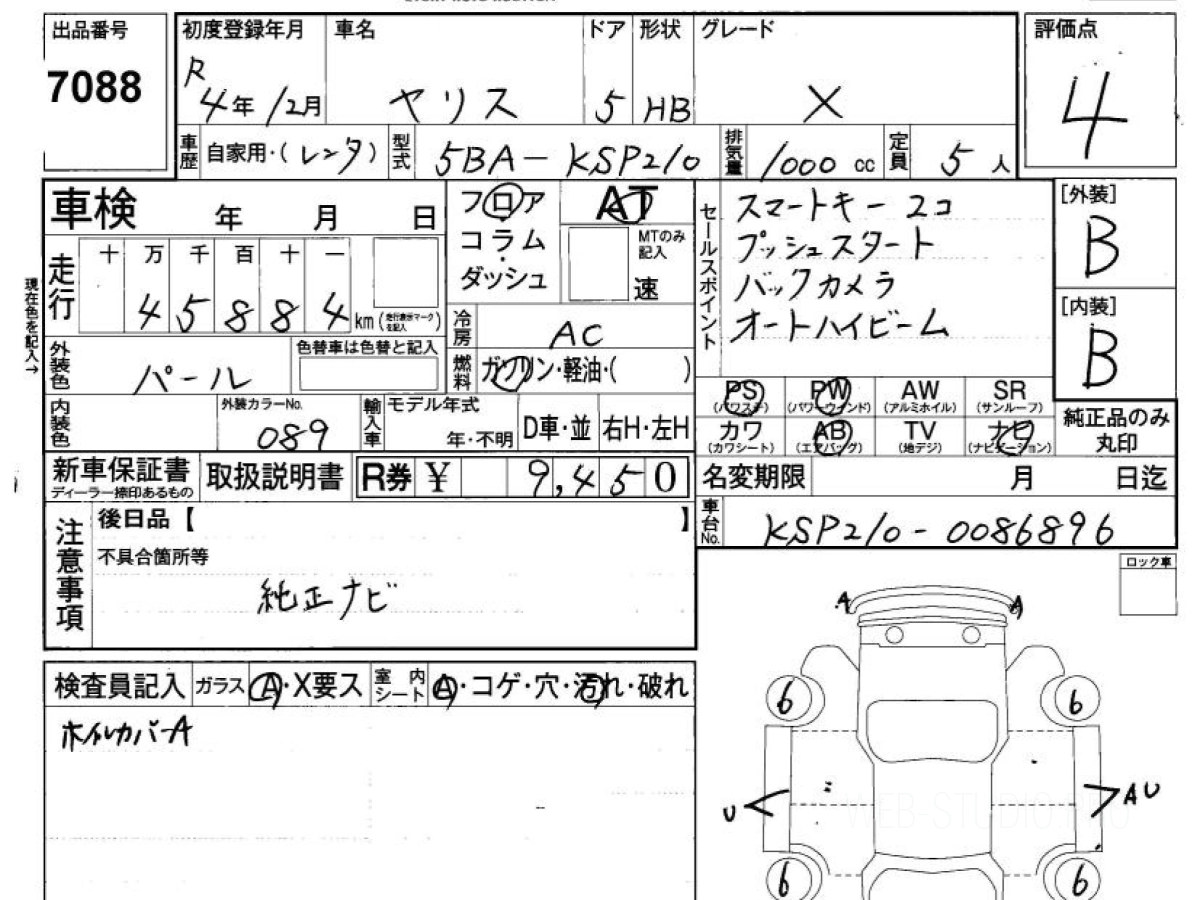 出品番号
7088
初度登録年月
R 4年 12月
車名
ヤリス
ドア
5
形状
HB
グレード
X
評価点
4
車歴
自家用・(レンタ)
型式
5BA-KSP210
排気量
1000 cc
定員
5 人
車検 年 月 日
走行
十 万 千 百 十 一
4 5 8 8 4 km (走行表示マークを記入)
現在色を記入→
フロア
コラム
ダッシュ
AT
MTのみ記入
速
冷房
AC
燃料
ガソリン・軽油・( )
セールスポイント
スマートキー 2コ
プッシュスタート
バックカメラ
オートハイビーム
[外装]
B
[内装]
B
外装色
パール
色替車は色替と記入
内装色
外装カラーNo.
089
輸入車
モデル年式
年・不明
D車・並
右H・左H
PS
(パワステ)
PW
(パワーウインド)
AW
(アルミホイル)
SR
(サンルーフ)
カワ
(カワシート)
AB
(エアバッグ)
TV
(地デジ)
ナビ
(ナビゲーション)
純正品のみ
丸印
新車保証書
ディーラー捺印あるもの
取扱説明書
R券 ¥ 9,450
名変期限 月 日迄
車台No.
KSP210-0086896
注意事項
後日品【 】
不具合箇所等
純正ナビ
ロック車
検査員記入
ガラス
A・X要ス
室内シート
A・コゲ・穴・汚れ・破れ
ホイルカバーA
A
A
6
6
U
AU
6
6
WEB-STUDIO.PRO